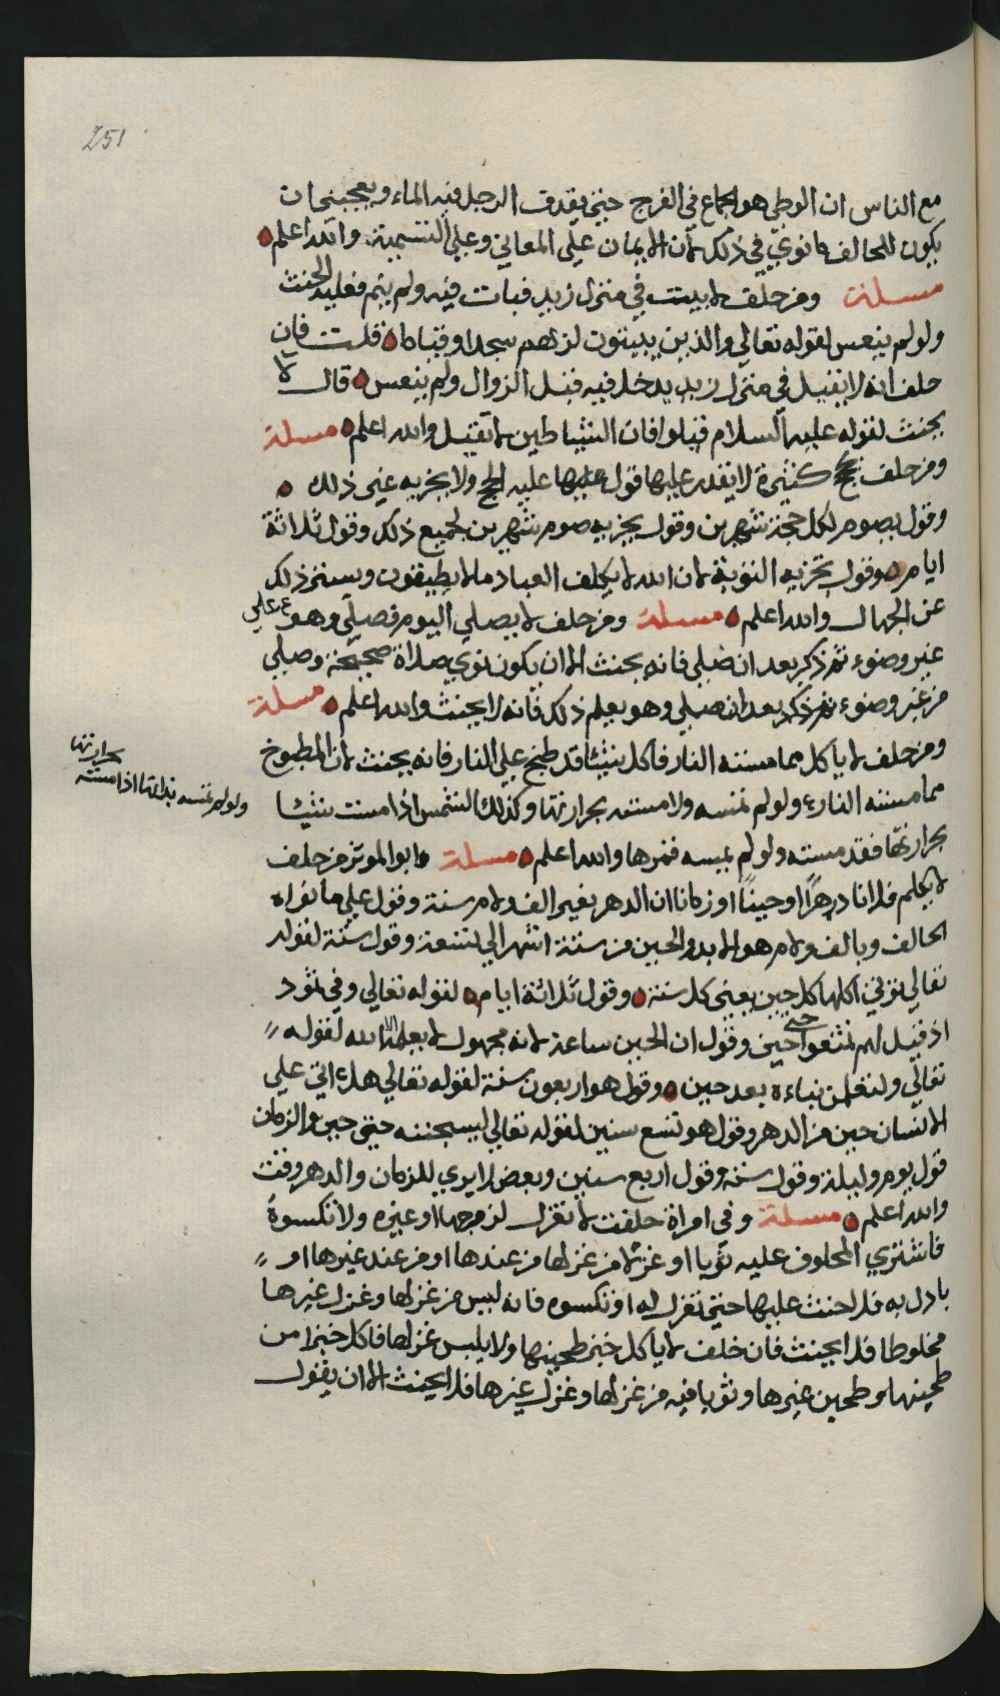 251
مع الناس ان الوطي هو الجماع في الفرج حتي يقدف الرجل فيه الماء ويعجبني ان
يكون للحالف ما نوي في ذلك لان الايمان علي المعاني وعلي التسمية والله اعلم
مسلة ومن حلف لا يبيت في منزل زيد فبات فيه ولم ينم فعليه الحنث
ولو لم ينعس لقوله تعالي والذين يبيتون لربهم سجدا وقياما قلت فان
حلف انه لا يقيل في منزل زيد يدخل فيه قبل الزوال ولم ينعس قال لا
يحنث لقوله عليه السلام قيلوا فان الشياطين لا تقيل والله اعلم مسلة
ومن حلف بحج كثيرة لا يقدر عليها قول عليه الحج ولا يجزيه غير ذلك
وقول يصوم لكل حجة شهرين وقول يجزيه صوم شهرين لجميع ذلك وقول ثلاثة
ايام وقول تجزيه التوبة لان الله لا يكلف العباد ما لا يطيقون ويستر ذلك
عن الجهال والله اعلم مسلة ومن حلف لا يصلي اليوم فصلي وهو علي
غير وضوء ثم ذكر بعد ان صلي فانه يحنث الا ان يكون نوي صلاة صحيحة وصلي
من غير وضوء ثم ذكر بعد ان صلي وهو يعلم ذلك فانه لا يحنث والله اعلم مسلة
ومن حلف لا ياكل مما مسته النار فاكل شيئا قد طبخ علي النار فانه يحنث لان المطبوخ
مما مسته النار ولو لم تمسه ولا مسته بحرارتها وكذلك الشمس اذا مست شيئا
بحرارتها
ولو لم تمسه بذاتها اذا مسته
بحرارتها فقد مسته ولو لم يمسه قمرها والله اعلم مسلة ابو الموثر من حلف
لا يكلم فلانا دهرا او حينا او زمانا ان الدهر بغير الف ولام سنة وقول علي ما نواه
الحالف وبالف ولام هو الابد والحين من ستة اشهر الي تسعة وقول سنة لقوله
تعالي تؤتي اكلها كل حين يعني كل سنة وقول ثلاثة ايام لقوله تعالي وفي ثمود
اذ قيل لهم تمتعوا حتي حين وقول ان الحين ساعة لانه مجهول لا يعلمه الا الله لقوله
تعالي ولتعلمن نباءه بعد حين وقول هو اربعون سنة لقوله تعالي هل اتي علي
الانسان حين من الدهر وقول هو تسع سنين لقوله تعالي ليسجننه حتي حين والزمان
قول يوم وليلة وقول سنة وقول اربع سنين وبعض لا يري للزمان والدهر وقت
والله اعلم مسلة وفي امراة حلفت لا تغزل لزوجها او غيره ولا تكسوه
فاشتري المحلوف عليه ثوبا او غزلا من غزلها من عندها او من عند غيرها او
بادل به فلا حنث عليها حتي تغزل له او تكسوه فانه لبس من غزلها وغزل غيرها
مخلوطا فلا يحنث فان حلف لا ياكل خبز طحينها ولا يلبس غزلها فاكل خبزا من
طحينها وطحين غيرها وثوبا فيه من غزلها وغزل غيرها فلا يحنث الا ان يقول